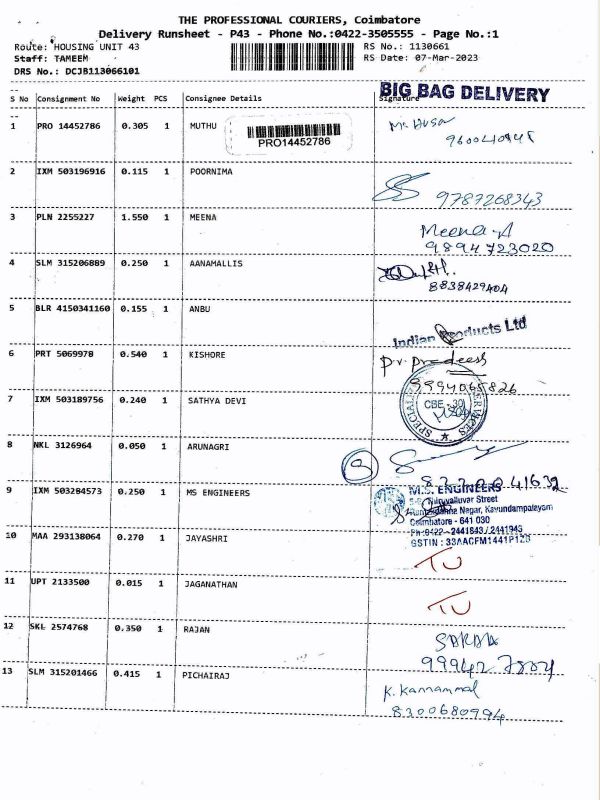 THE PROFESSIONAL COURIERS, Coimbatore
Delivery Runsheet - P43 - Phone No.:0422-3505555 - Page No.:1
Route: HOUSING UNIT 43 RS No.: 1130661
Staff: TAMEEM RS Date: 07-Mar-2023
DRS No.: DCJB113066101
BIG BAG DELIVERY
S No Consignment No Weight PCS Consignee Details Signature
1 PRO 14452786 0.305 1 MUTHU
PRO14452786
2 IXM 503196916 0.115 1 POORNIMA
9787268343
3 PLN 2255227 1.550 1 MEENA
Meena
9894723020
4 SLM 315206889 0.250 1 AANAMALLIS
8838429404
5 BLR 4150341160 0.155 1 ANBU
Indian Products Ltd
6 PRT 5069978 0.540 1 KISHORE
P.V. Pradeesh
9994065826
7 IXM 503189756 0.240 1 SATHYA DEVI
CBE - 30
8 NKL 3126964 0.050 1 ARUNAGRI
9 IXM 503284573 0.250 1 MS ENGINEERS
M.S. ENGINEERS
Thiruvalluvar Street
Nagar, Kavundampalayam
Coimbatore - 641 030
Ph:0422 - 2441843 / 2441943
GSTIN : 33AACFM1441P1ZB
10 MAA 293138064 0.270 1 JAYASHRI
TU
11 UPT 2133500 0.015 1 JAGANATHAN
TU
12 SKL 2574768 0.350 1 RAJAN
13 SLM 315201466 0.415 1 PICHAIRAJ
K. Kannammal
8300680994